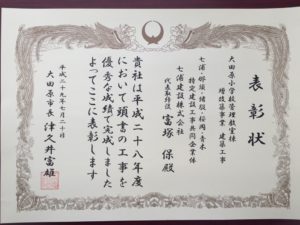 表彰状
大田原小学校管理教室棟
増改築事業 建築工事
七浦・那須・猪股・桜岡・青木
特定建設工事共同企業体
七浦建設株式会社
代表取締役 富塚 保殿
貴社は平成二十八年度
において頭書の工事を
優秀な成績で完成しました
よってここに表彰します
平成二十九年七月二十日
大田原市長 津久井富雄